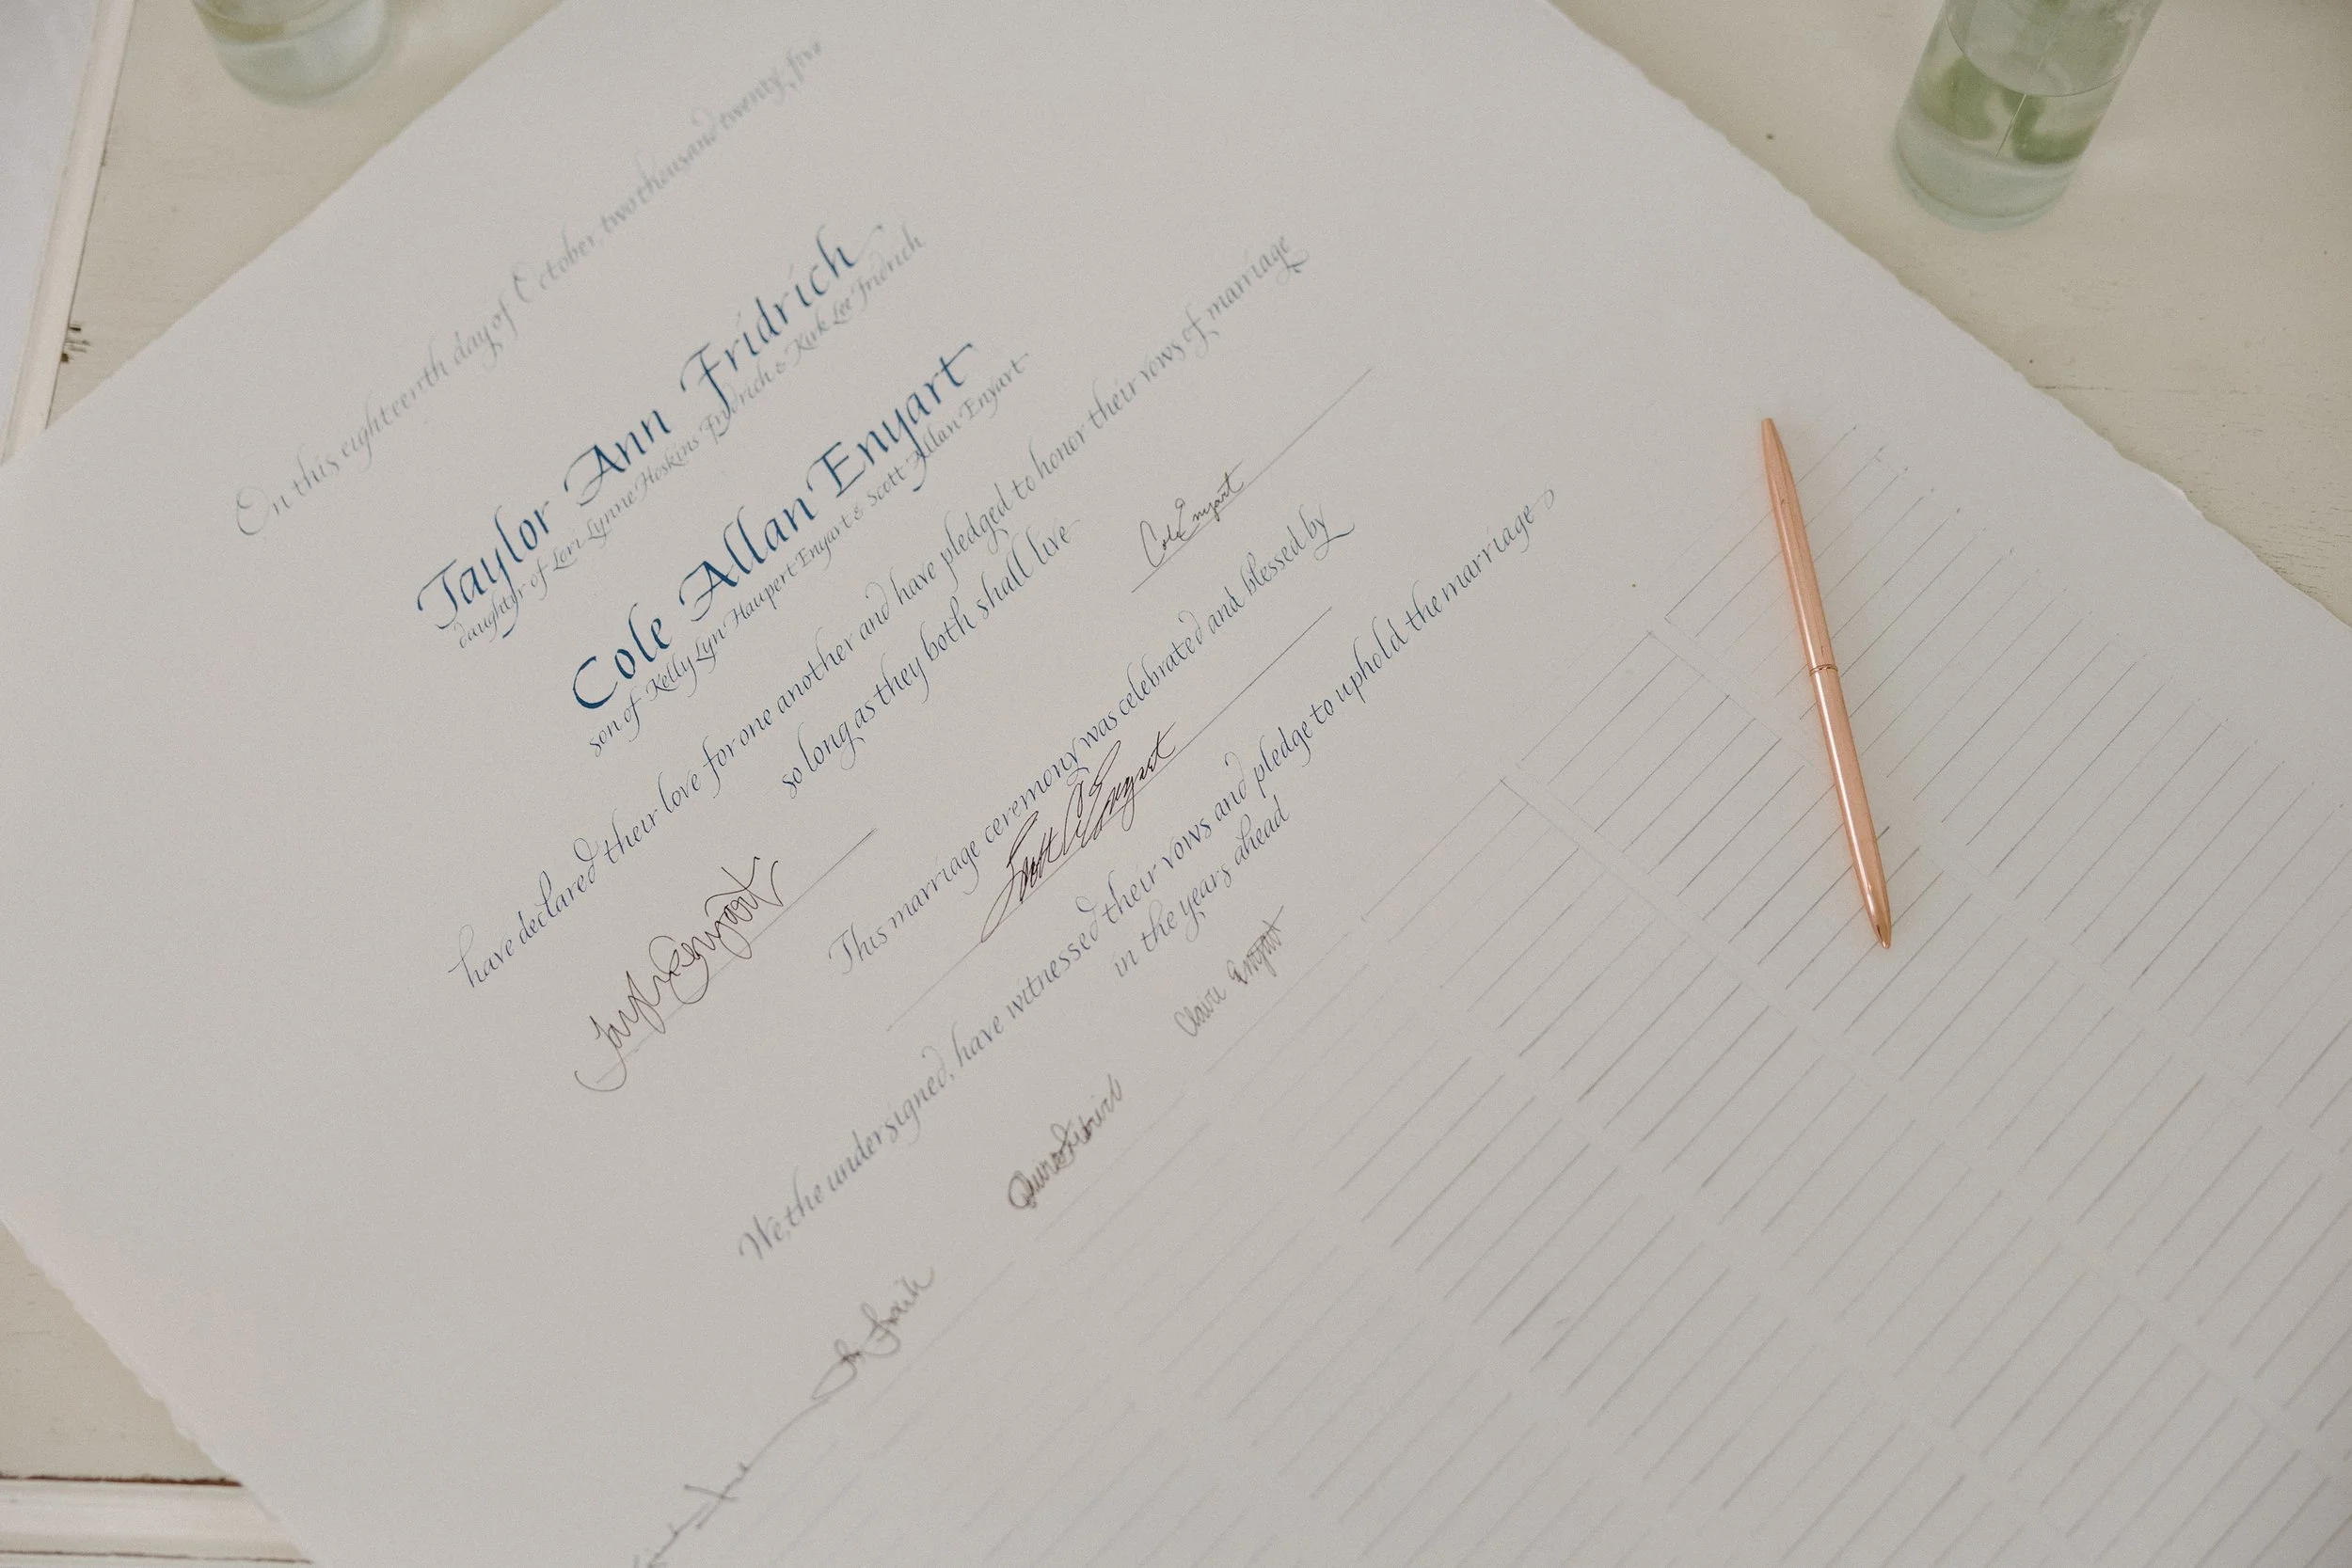 On this eighteenth day of October, two thousand twenty, five
Taylor Ann Fridrich
daughter of Lori Lynne Hoskins Fridrich & Kirk Lee Fridrich
Cole Allan Enyart
son of Kelly Lyn Haupert Enyart & Scott Allan Enyart
have declared their love for one another and have pledged to honor their vows of marriage
so long as they both shall live
Taylor Enyart
Cole Enyart
This marriage ceremony was celebrated and blessed by
Scott A Enyart
We, the undersigned, have witnessed their vows and pledge to uphold the marriage
in the years ahead
Claire Enyart